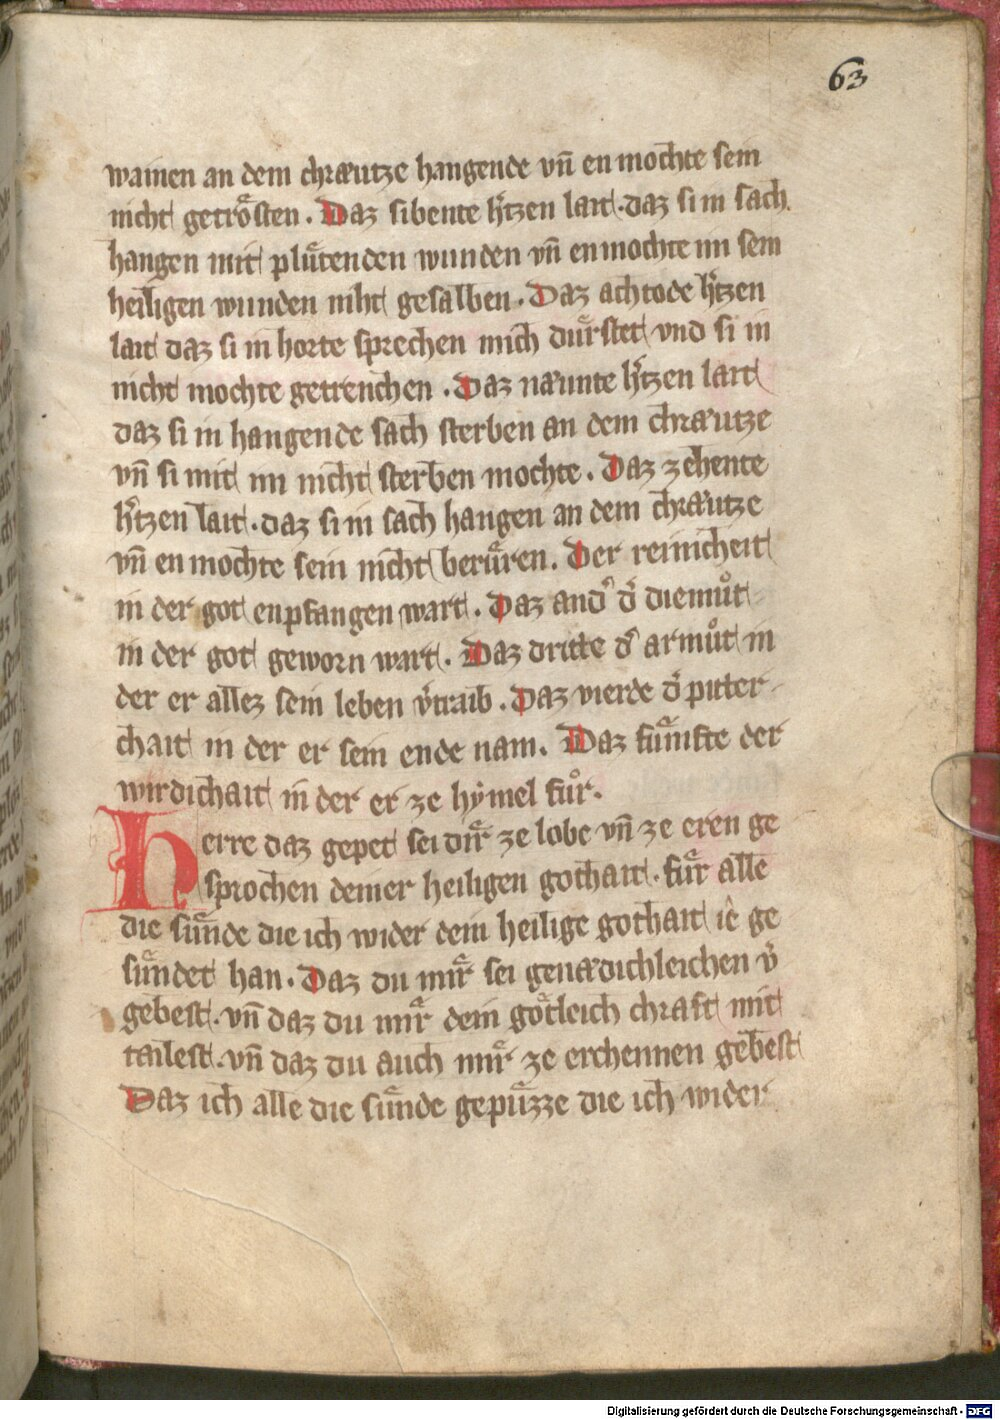 63
wainen an dem chræutze hangende vn̄ en mochte sein
nicht getroͤsten. Daz sibente hͤtzen lait. daz si in sach
hangen mit pluͤtenden wunden vn̄ en mochte im sein
heiligen wunden niht gesalben. Daz achtode hͤtzen
lait daz si in horte sprechen mich duͤrstet vnd si in
nicht mochte getrenchen. Daz næunte hͤtzen lait
daz si in hangende sach sterben an dem chræutze
vn̄ si mit im nicht sterben mochte. Daz zehente
hͤtzen lait. daz si in sach hangen an dem chræutze
vn̄ en mochte sein nicht beruͤren. Der reinicheit
in der got enpfangen wart. Daz and᾽ d᾽ diemuͦt
in der got geworn wart. Daz dritte d᾽ armuͦt in
der er allez sein leben v᾽traib. Daz vierde d᾽ pitter
chait in der er sein ende nam. Daz fuͤmfte der
wirdichait in der er ze hẏmel fuͦr.
Herre daz gepet sei diͤr ze lobe vn̄ ze eren ge
sprochen deiner heiligen gothait. fuͤr alle
die suͤnde die ich wider dein heilige gothait ie ge
suͤndet han. Daz du miͤr sei genædichleichen v᾽
gebest. vn̄ daz du miͤr dein goͤtleich chraft mit
tailest. vn̄ daz du auch miͤr ze erchennen gebest
Daz ich alle die suͤnde gepuͤzze die ich wider
Digitalisierung gefördert durch die Deutsche Forschungsgemeinschaft - DFG